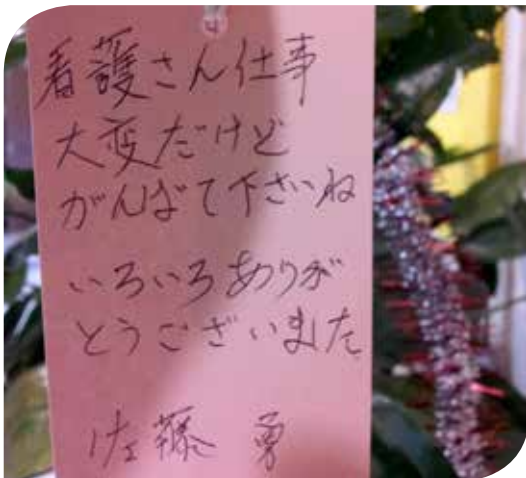 看護さん仕事
大変だけど
がんばて下さいね
いろいろありが
とうございました
佐藤勇